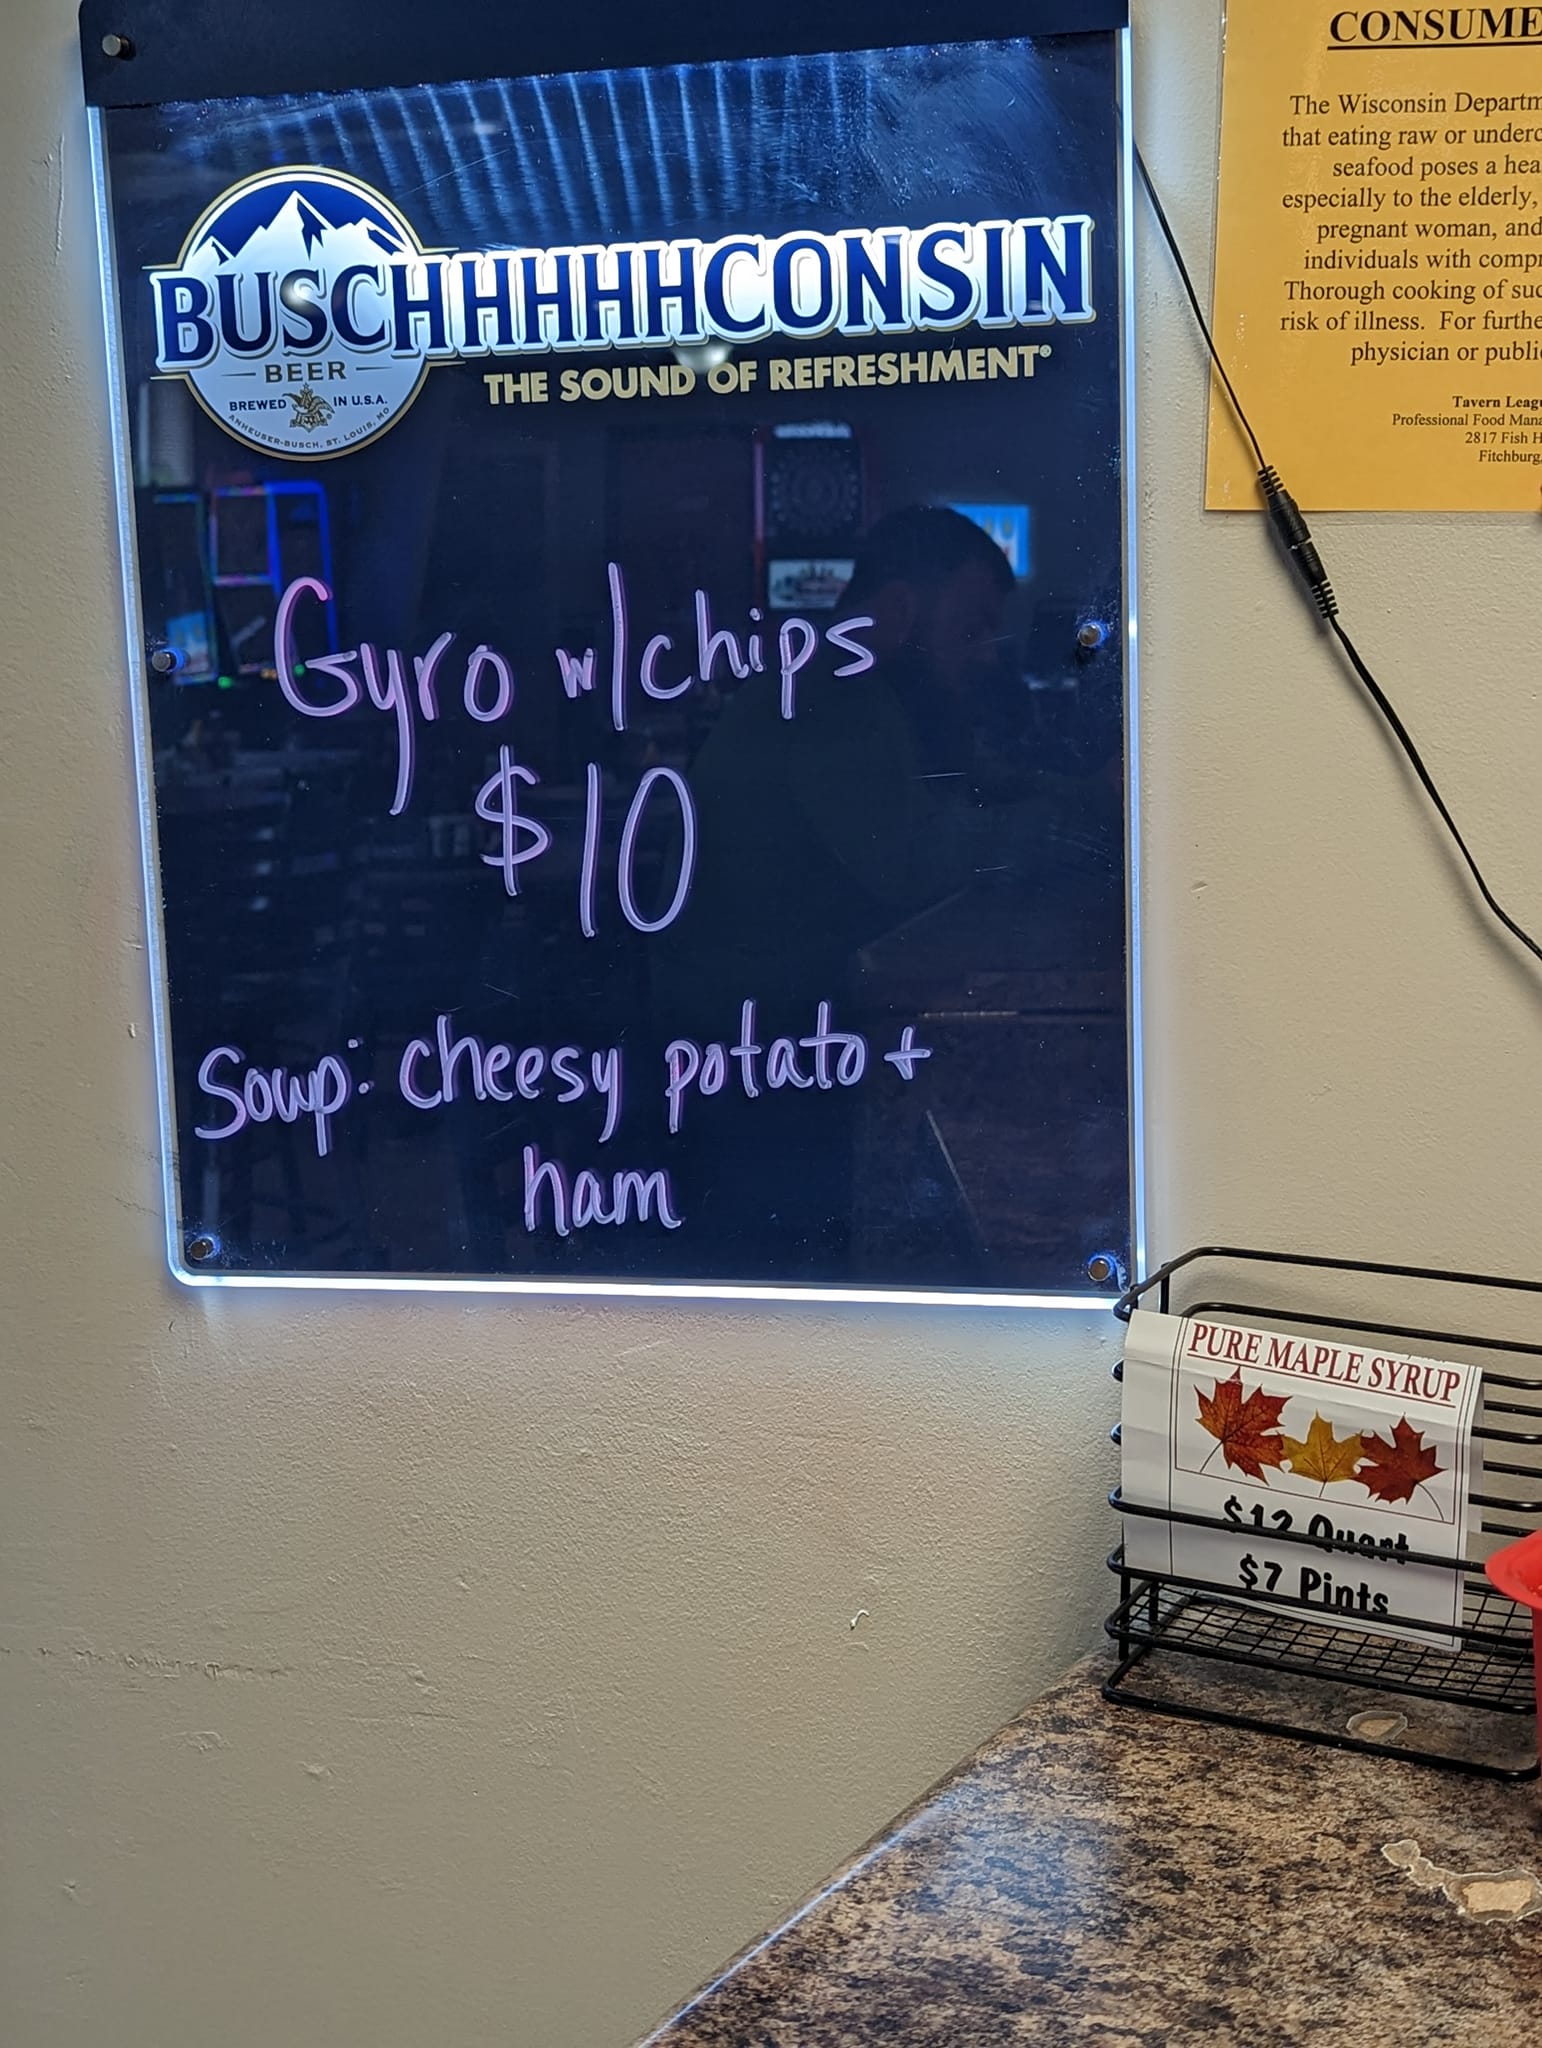 BUSCHHHHHCONSIN
BEER
BREWED IN U.S.A.
ANHEUSER-BUSCH, ST. LOUIS, MO
THE SOUND OF REFRESHMENT®
Gyro w/chips
$10
Soup: cheesy potato +
ham
CONSUME
The Wisconsin Departm
that eating raw or underc
seafood poses a hea
especially to the elderly,
pregnant woman, and
individuals with compr
Thorough cooking of suc
risk of illness. For furthe
physician or publi
Tavern Leagu
Professional Food Mana
2817 Fish H
Fitchburg,
PURE MAPLE SYRUP
$12 Quart
$7 Pints